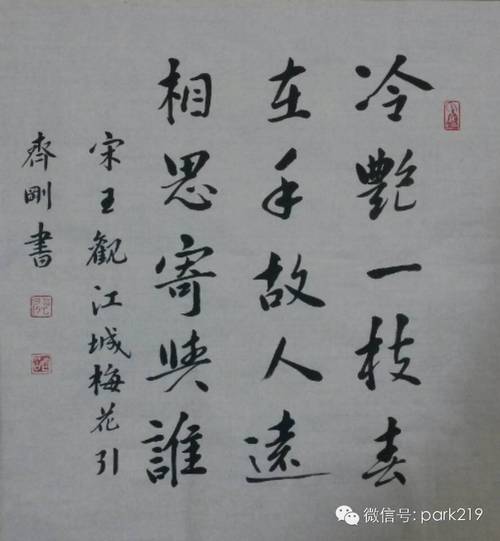 冷艷一枝春
在手故人遠
相思寄與誰
宋王觀江城梅花引
齊剛書
微信号: park219